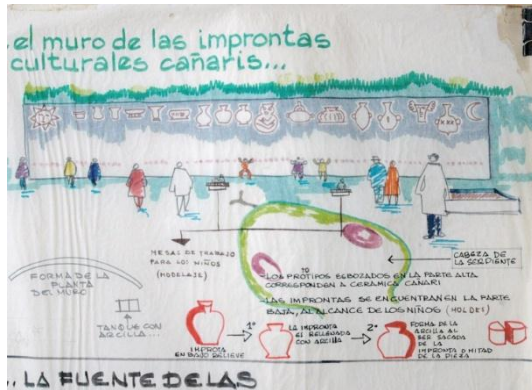 el muro de las improntas
culturales cañaris...
MESAS DE TRABAJO
PARA LOS NIÑOS
(MODELAJE)
CABEZA DE
LA SERPIENTE
FORMA DE LA
PLANTA
DEL MURO
TO
-LOS PROTIPOS ESBOZADOS EN LA PARTE ALTA
CORRESPONDEN A CERAMICA CAÑARI
-LAS IMPRONTAS SE ENCUENTRAN EN LA PARTE
BAJA, AL ALCANCE DE LOS NIÑOS (MOLDES)
TANQUE CON
ARCILLA...
IMPROTA
EN BAJO RELIEVE
1º
LA IMPRONTA
ES RELLENADA
CON ARCILLA
2º
FORMA DE LA
ARCILLA AL
SER SACADA
DE LA
IMPRONTA O MITAD
DE LA PIEZA
... LA FUENTE DE LAS